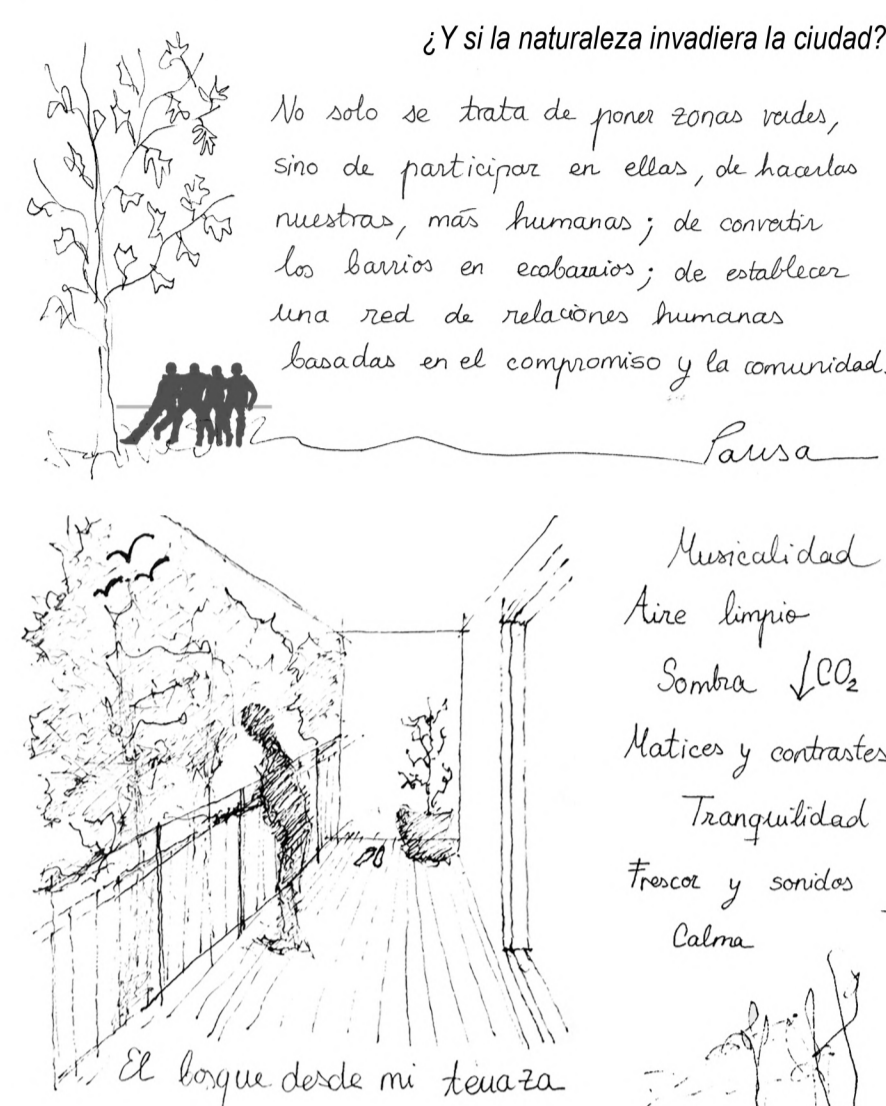 ¿Y si la naturaleza invadiera la ciudad?
No solo se trata de poner zonas verdes,
sino de participar en ellas, de hacerlas
nuestras, más humanas; de convertir
los barrios en ecobarrios; de establecer
una red de relaciones humanas
basadas en el compromiso y la comunidad.
Pausa
Musicalidad
Aire limpio
Sombra ↓CO₂
Matices y contrastes
Tranquilidad
Frescor y sonidos
Calma
El bosque desde mi terraza